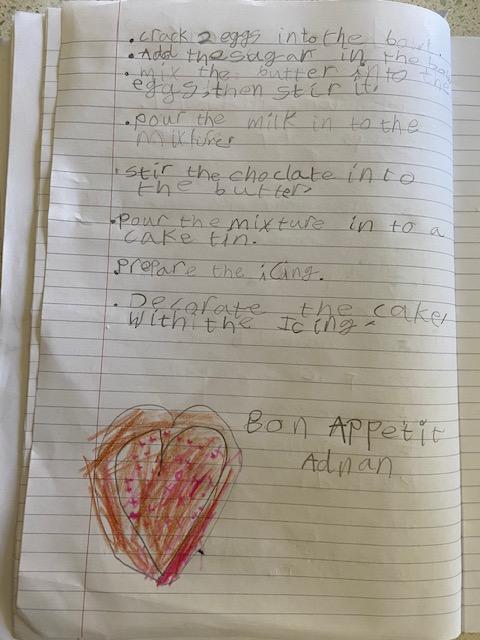 . crack 2 eggs into the bowl.
. Add the sugar in the bowl
. mix the butter into the
eggs, then stir it.
. pour the milk in to the
mixture.
. stir the choclate in to
the butter.
. pour the mixture in to a
cake tin.
prepare the icing.
. Decorate the cake,
with the Icing.
Bon Appetit
Adnan